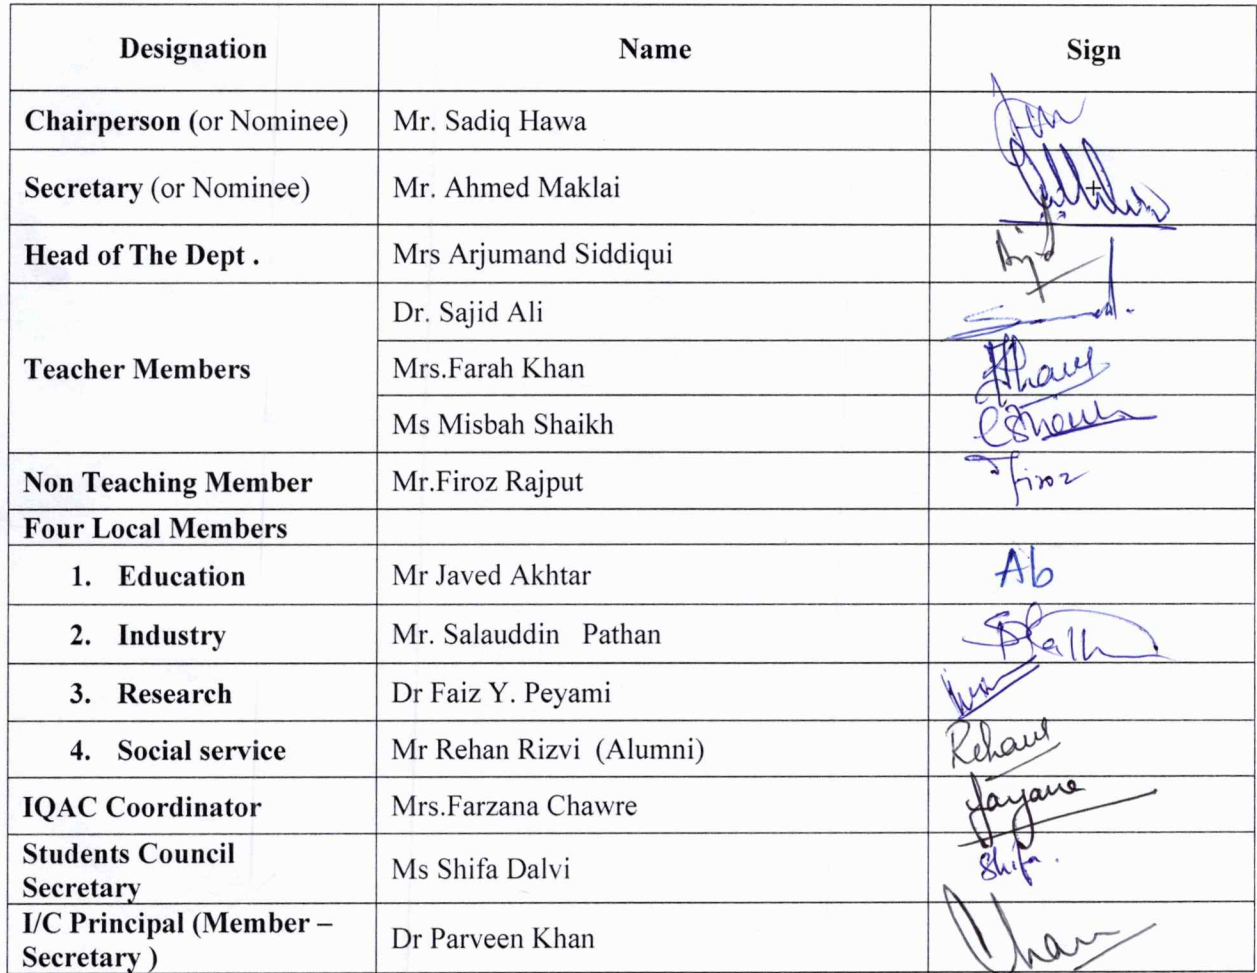 Designation Name Sign
Chairperson (or Nominee) Mr. Sadiq Hawa
Secretary (or Nominee) Mr. Ahmed Maklai
Head of The Dept . Mrs Arjumand Siddiqui
Dr. Sajid Ali
Teacher Members Mrs.Farah Khan
Ms Misbah Shaikh
Non Teaching Member Mr.Firoz Rajput Firoz
Four Local Members
1. Education Mr Javed Akhtar Ab
2. Industry Mr. Salauddin Pathan
3. Research Dr Faiz Y. Peyami
4. Social service Mr Rehan Rizvi (Alumni)
IQAC Coordinator Mrs.Farzana Chawre
Students Council
Secretary Ms Shifa Dalvi Shifa.
I/C Principal (Member –
Secretary ) Dr Parveen Khan